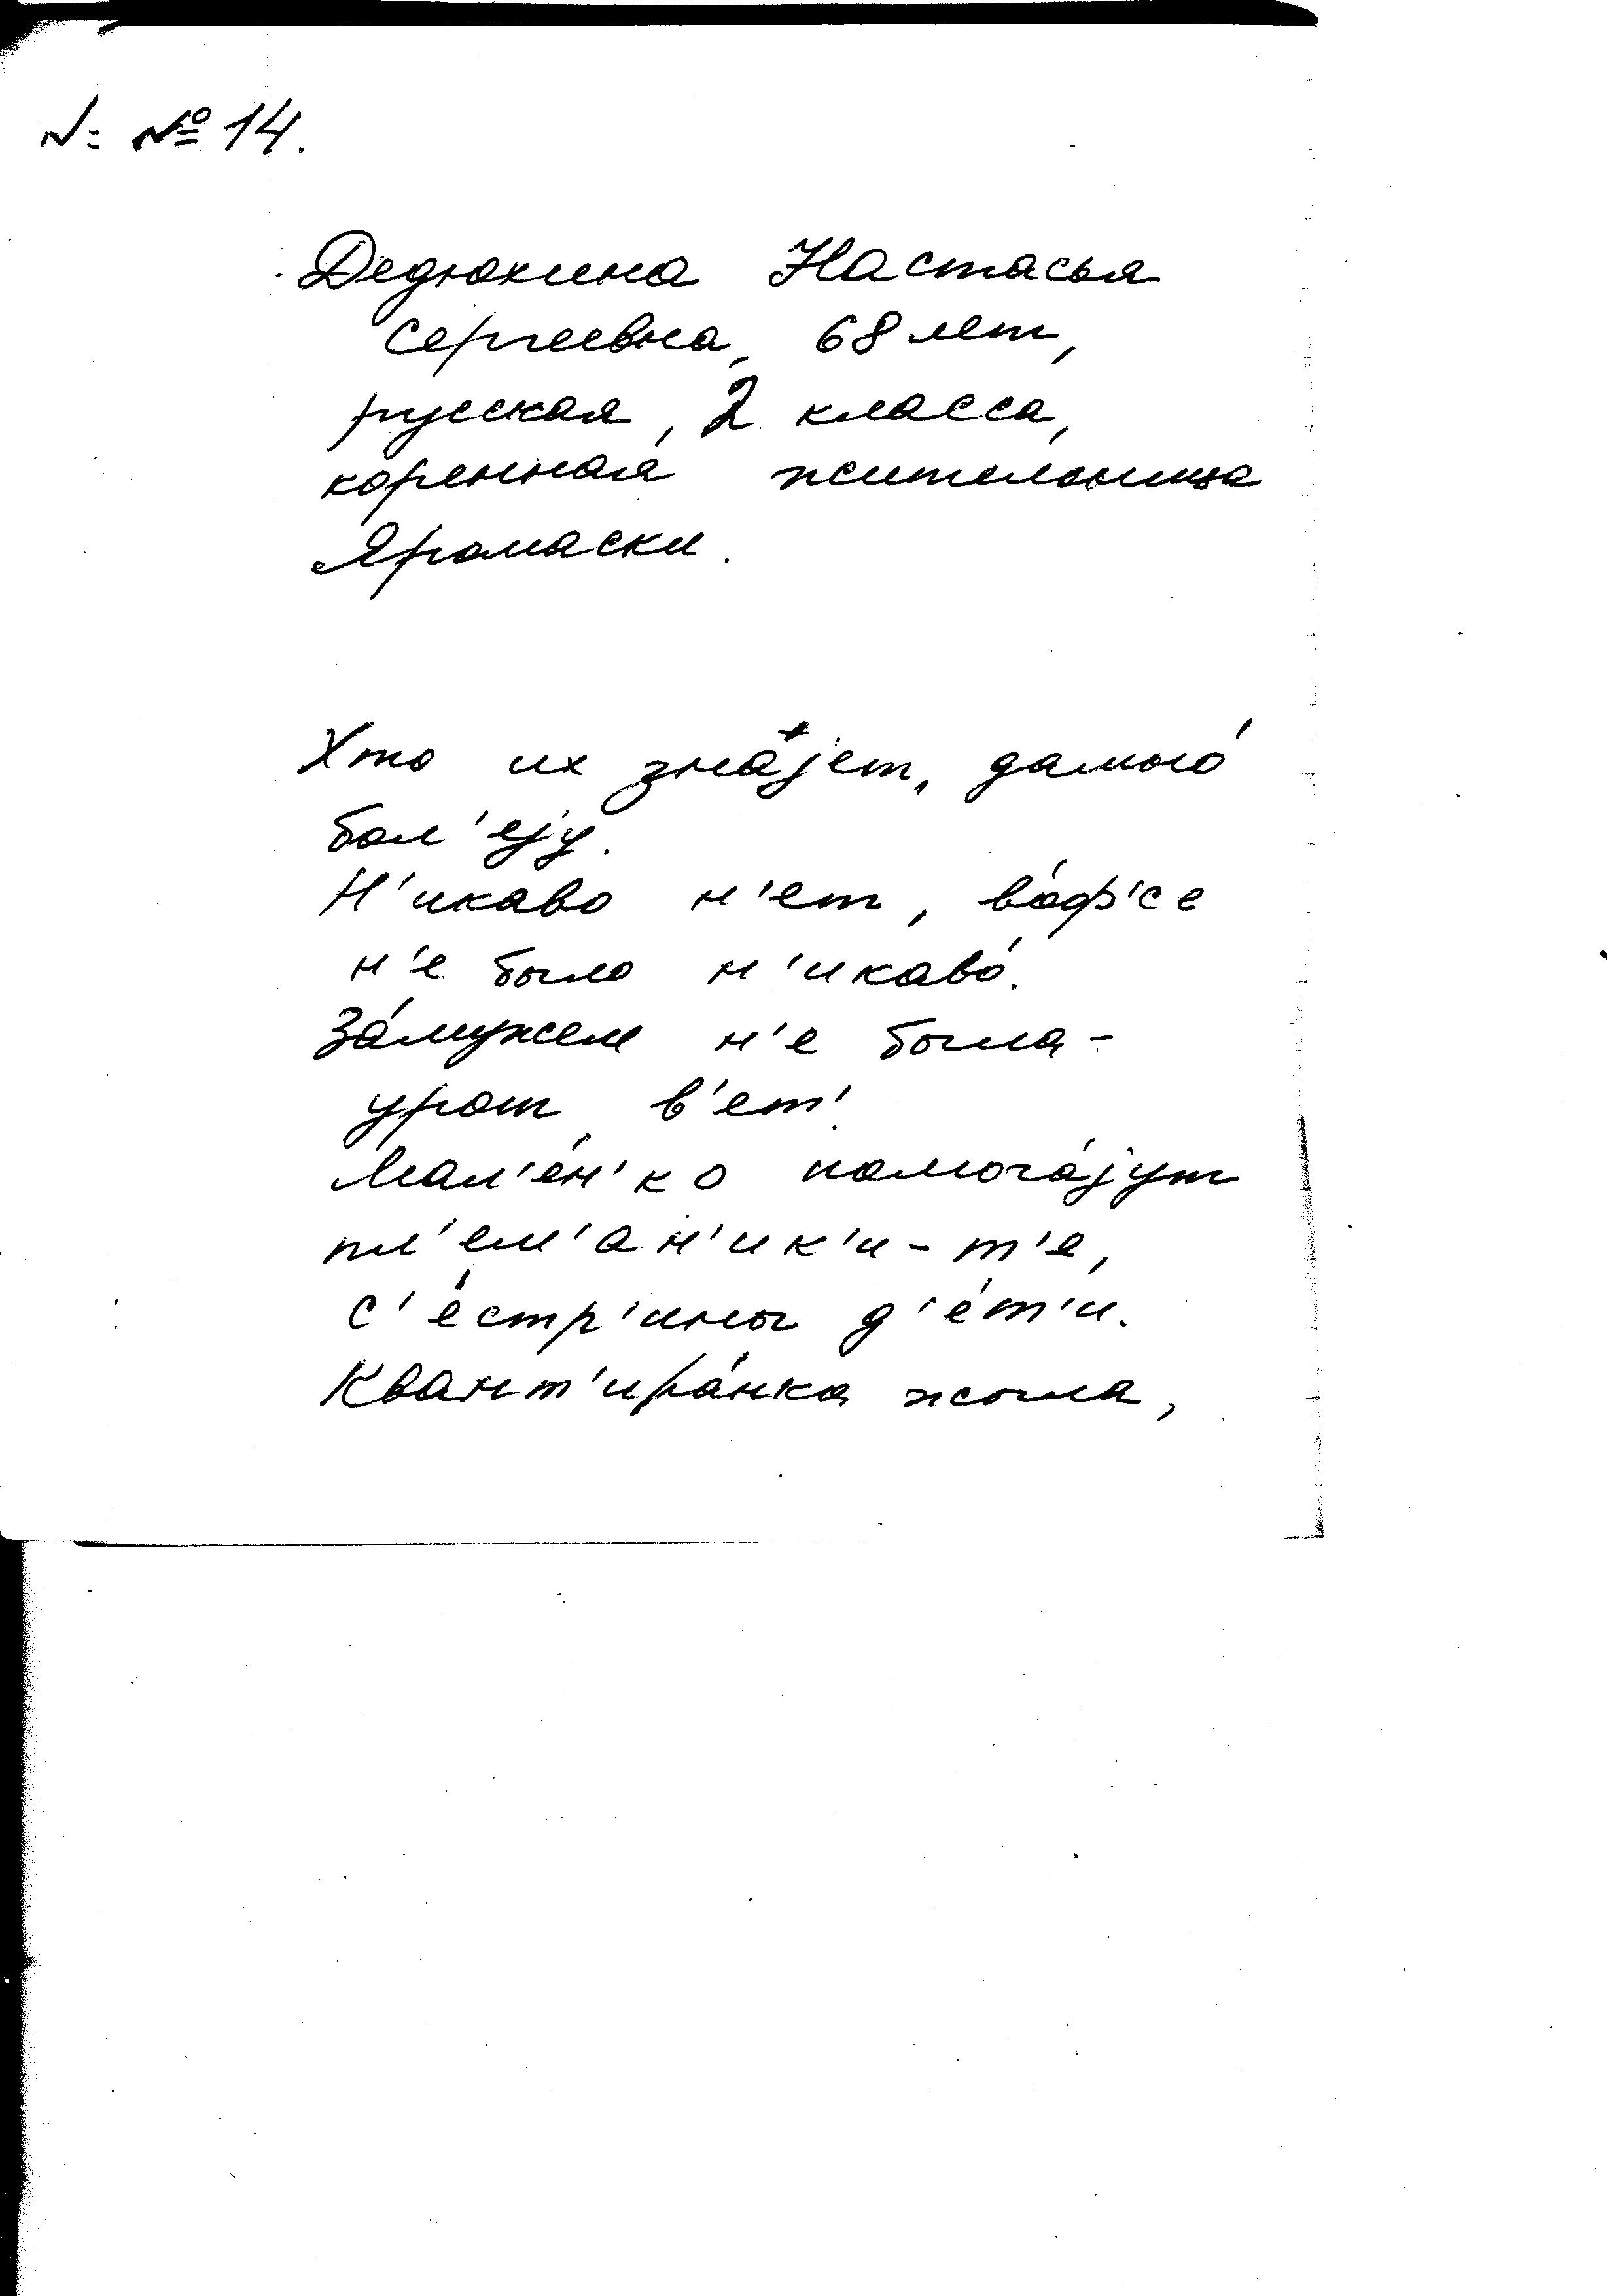 N: № 14.
Дедюхина Настасья
Сергеевна, 68 лет,
русская, 2 класса,
коренная жительница
Яромаски.
Хто их зна́jет, давно́
бол'еjу.
Н'икаво н'ет, во́фс'е
н'е было н'икаво́.
За́мужем н'е была -
урот в'ет'.
Мал'е́н'ко помога́jут
пл'ем'ан'ик'и - т'е,
с'е́стр'ины д'е́т'и.
Квант'ира́нка жыла,